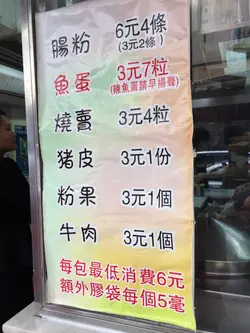 腸粉 6元4條
(3元2條)
魚蛋 3元7粒
(辣魚蛋請早揚聲)
燒賣 3元4粒
猪皮 3元1份
粉果 3元1個
牛肉 3元1個
每包最低消費6元
額外膠袋每個5毫